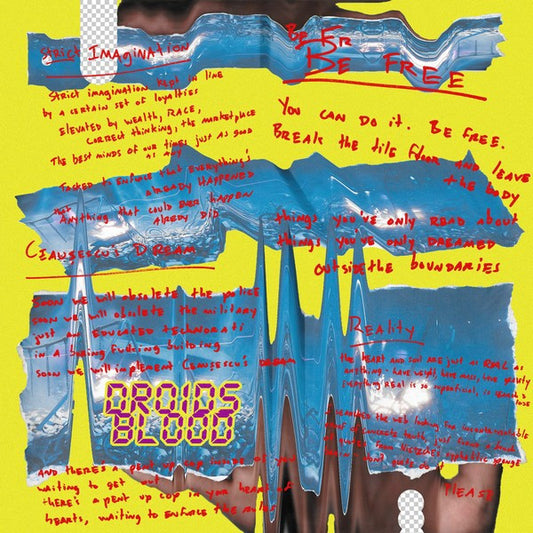 Strict Imagination
Strict imagination kept in line
by a certain set of loyalties
Elevated by wealth, race,
correct thinking, the marketplace
The best minds of our times just as good
as any
Tasked to enforce that everything's
already happened
that anything that could ever happen
already did
Ceausescu's Dream
Soon we will obsolete the police
soon we will obsolete the military
just an educated technorati
in a boring fucking building
soon we will implement Ceausescu's dream
DROIDS
BLOOD
And there's a pent up cop inside of you
waiting to get out
there's a pent up cop in your heart of
hearts, waiting to enforce the rules
Be Fr
Be Free
You can do it. Be free.
Break the tile floor and leave
the body
things you've only read about
things you've only dreamed
outside the boundaries
Reality
the heart and soul are just as real as
anything - have weight, have mass, have gravity
everything real is so superficial, is
lose
I searched the web looking for incontrovertible
proof of concrete truth, just found a bunch
of quotes from Nietzche's syphilitic sponge
brain don't quote do it
Please